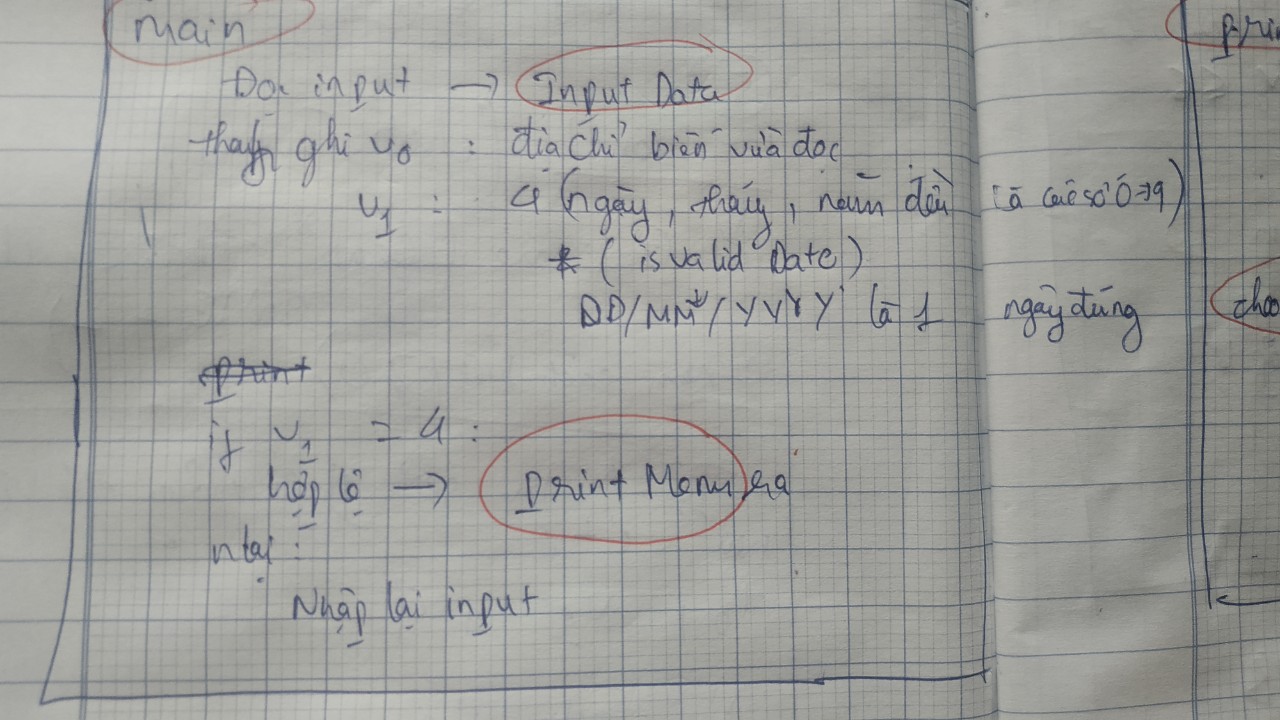 main
Đọc input → Input Data
thanh ghi v0 : địa chỉ biến vừa đọc
v1 : 4 (ngày, tháng, năm đều là các số 0→9)
* (is valid Date)
DD/MM/YYYY là 1 ngày đúng
print
if v1 = 4 :
hợp lệ → Print Menu ra
n lại :
Nhập lại input
prin
choo